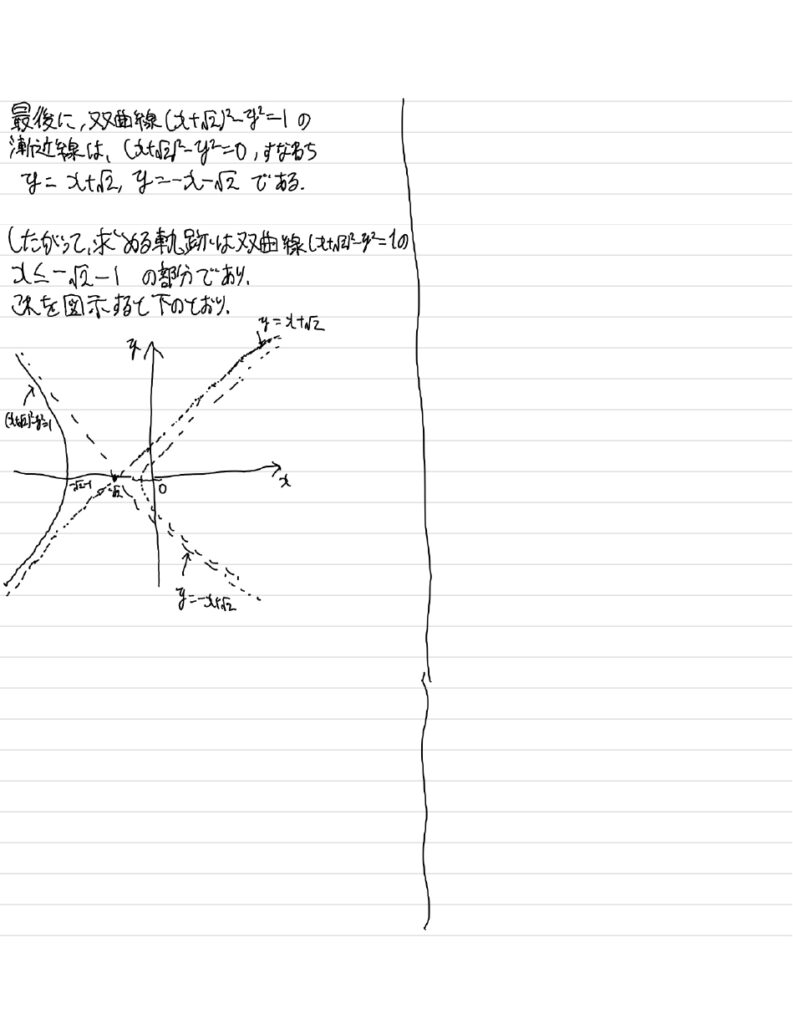 最後に,双曲線(x+√2)²-y²=-1の
漸近線は,(x+√2)²-y²=0,すなわち
y=x+√2, y=-x-√2 である.
したがって,求める軌跡は双曲線(x+√2)²-y²=1の
x≤-√2-1 の部分であり,
これを図示すると下のとおり.
y=x+√2
y
(x+√2)²-y²=1
-√2-1
-√2
O
x
y=-x+√2